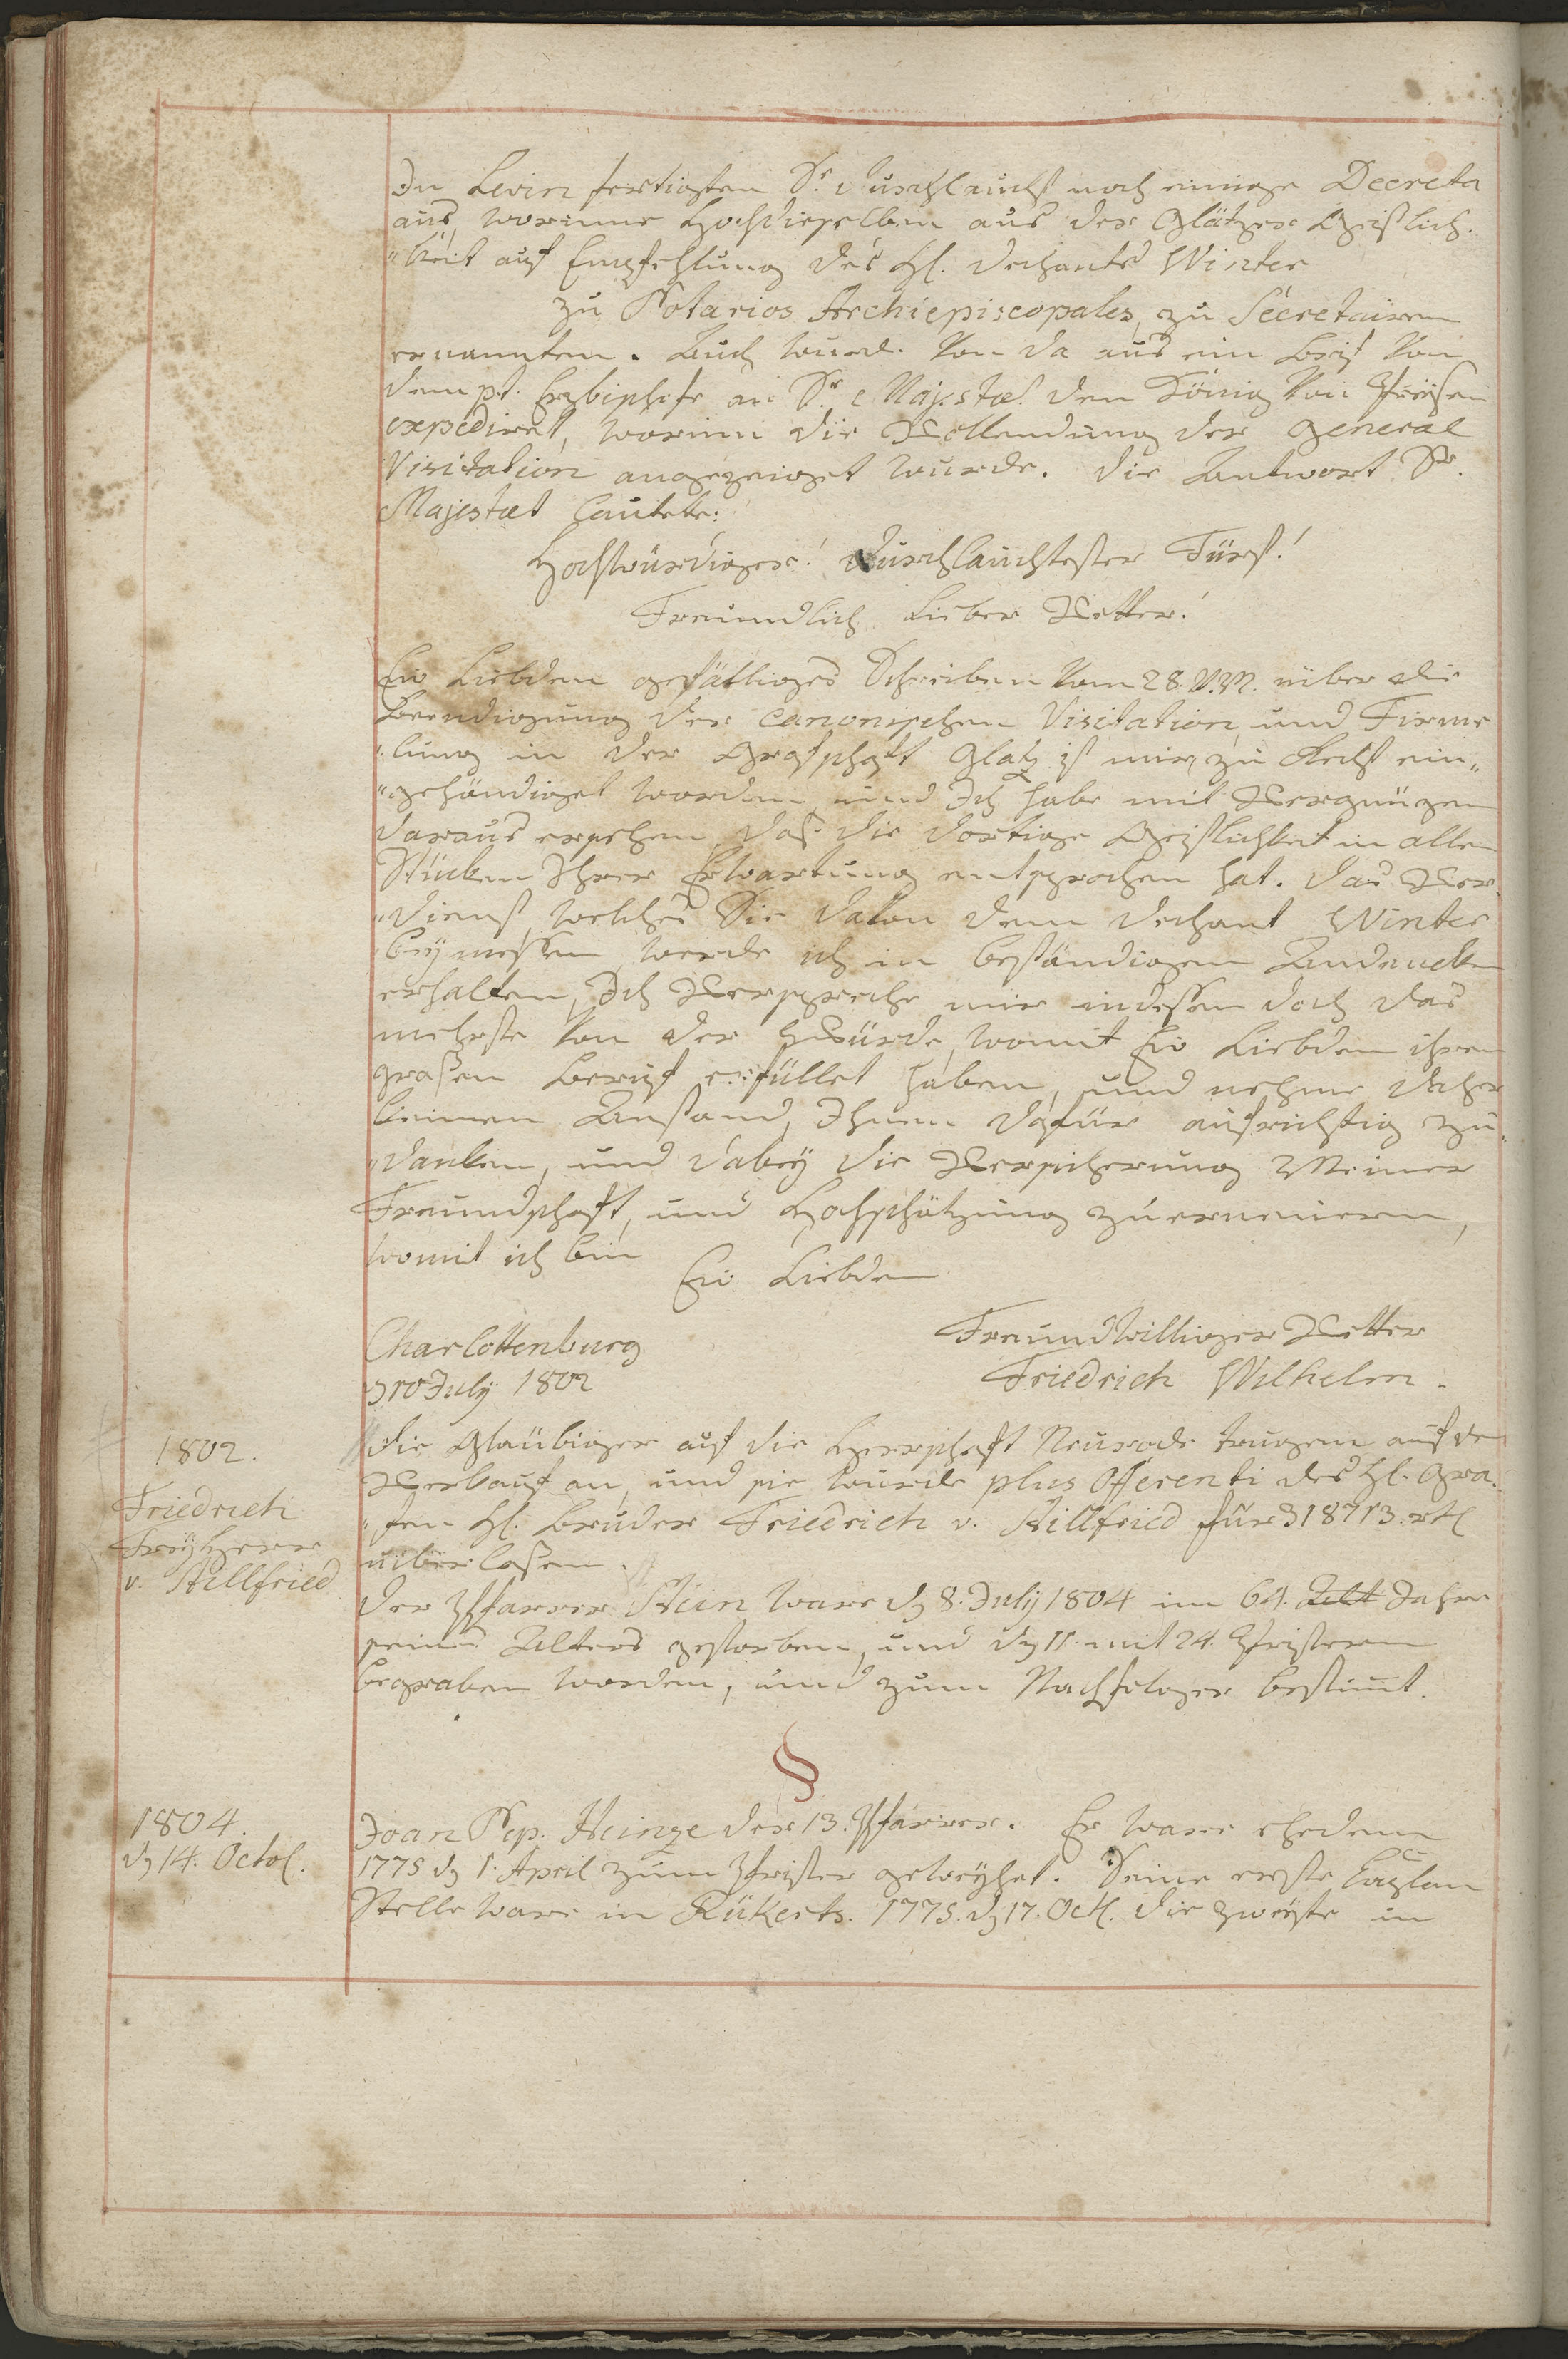 In Lewin fertigten Sr. Durchlaucht noch einige Decreta
aus, worinne Hochdieselben aus der Glätzer Geistlich-
„keit auf Empfehlung des H. Dechants Winter
zu Notarios Archiepiscopales, zu Secretairen
ernannten. Auch wurd. von da aus ein Brief von
dem p.t. Erzbischofe an Sr. Majestæt den König von Preüsen
expediret, worinn die Vollendung der General
Visitation angezeiget wurde. Die Antwort Sr.
Majestæt lautete:
Hochwürdiger! Durchlauchtester Fürst!
Freundlich Lieber Vetter!
Ew Liebden gefälliges Schreiben vom 28. v.M. über die
Beendigung der Canonischen Visitation und Firme
„lung in der Grafschaft Glatz ist mir zu Recht ein„
„gehändiget worden, und Ich habe mit Vergnügen
daraus ersehen, daß die dortige Geistlichkeit in allen
Stücken Ihrer Erwartung entsprochen hat. Das Ver-
„dienst, welches Sie davon dem Dechant Winter
beymessen, werde ich in beständigem Andencken
erhalten, Ich Verspreche mir indessen doch das
mehrste von der Würde, womit Ew Liebden ihren
großen Beruf erfüllet haben, und nehme daher
keinen Anstand, Ihnen dafür aufrichtig zu
„danken, und dabey die Versicherung Meiner
Freundschaft, und Hochschätzung zu erneuern,
womit ich bin
Ew Liebden
Charlottenburg
Freundwilliger Vetter
July 1802
Friedrich Wilhelm.
1802.
Friedrich
Freyherr
v. Stillfried
Die Glaübiger auf die Herrschaft Neurode trugen auf den
Verkauf an, und sie wurde plus Offerenti des H. Gra-
„fen H. Bruder Friedrich v. Stillfried für 318713. rtl
überlaßen.
Der Pfarrer Stein ware dn 8. July 1804 im 64. Alt Jahre
seines Alters gestorben, und dn 11. mit 24. Pristern
begraben worden, und zum Nachfolger bestimt.
§
1804.
dn 14. Octob.
Joan Nep. Heinze der 13. Pfarrer. Er ware ehedem
1775 dn 1. April zum Prister geweyhet. Seine erste Caplan
Stelle ware in Rükerts. 1775. dn 17. Oct. die zweyte in